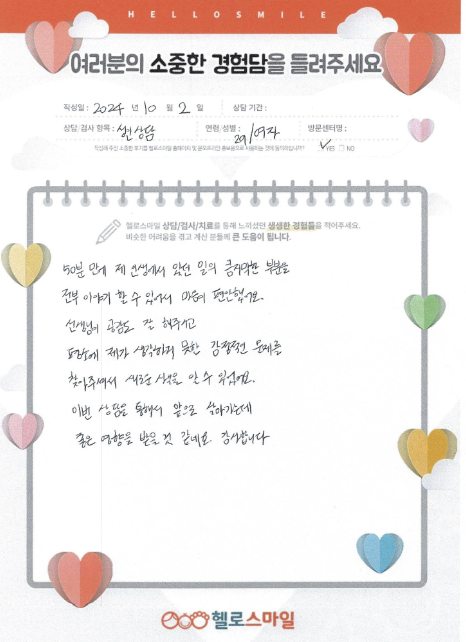 HELLOSMILE
여러분의 소중한 경험담을 들려주세요
작성일 : 2024 년 10 월 2 일 상담 기간 :
상담/검사 항목 : 성인상담 연령/성별 : 29/여자 방문센터명 :
작성해 주신 소중한 후기를 헬로스마일 홈페이지 및 온/오프라인 홍보용으로 사용하는 것에 동의하십니까? YES NO
헬로스마일 상담/검사/치료를 통해 느끼셨던 생생한 경험들을 적어주세요.
비슷한 어려움을 겪고 계신 분들께 큰 도움이 됩니다.
50분 만에 제 인생에서 있었던 일의 큼지막한 부분을
전부 이야기 할 수 있어서 마음이 편안했어요.
선생님이 공감도 잘 해주시고
평소에 제가 생각하지 못한 감정적인 문제를
찾아주셔서 새로운 사실을 알 수 있었어요.
이번 상담을 통해서 앞으로 살아가는데
좋은 영향을 받을 것 같네요. 감사합니다
헬로스마일